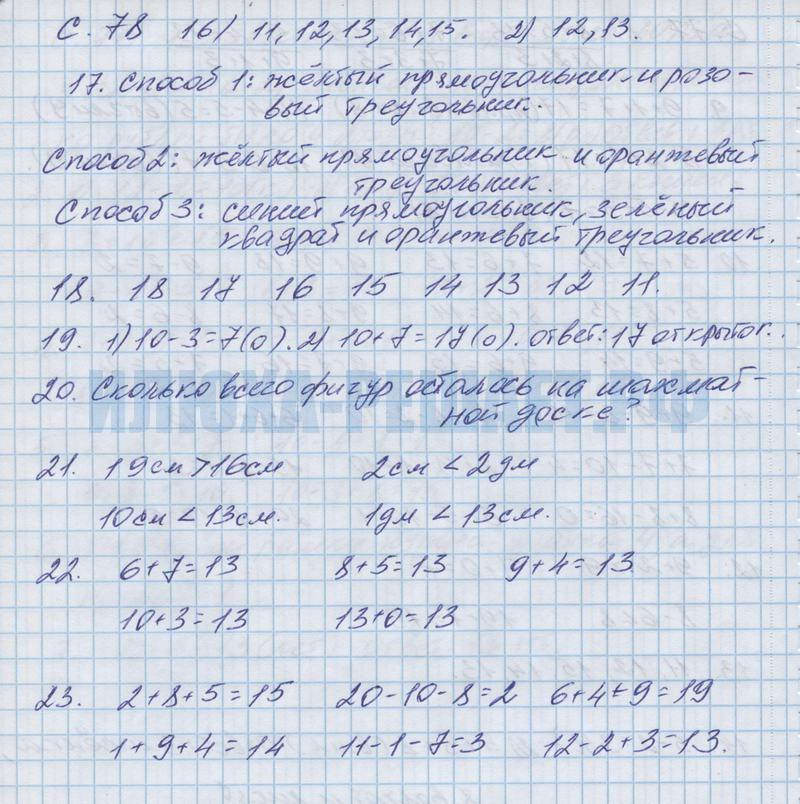 С. 78 16) 11, 12, 13, 14, 15. 2) 12, 13.
17. Способ 1: жёлтый прямоугольник и розо-
вый треугольник.
Способ 2: жёлтый прямоугольник и оранжевый
треугольник.
Способ 3: синий прямоугольник, зелёный
квадрат и оранжевый треугольник.
18. 18 17 16 15 14 13 12 11.
19. 1) 10-3=7(о). 2) 10+7=17(о). ответ: 17 открыток.
20. Сколько всего фигур осталось на шахмат-
ной доске?
21. 19см > 16см 2см < 2дм
10см < 13см. 1дм < 13см.
22. 6+7=13 8+5=13 9+4=13
10+3=13 13+0=13
23. 2+8+5=15 20-10-8=2 6+4+9=19
1+9+4=14 11-1-7=3 12-2+3=13.